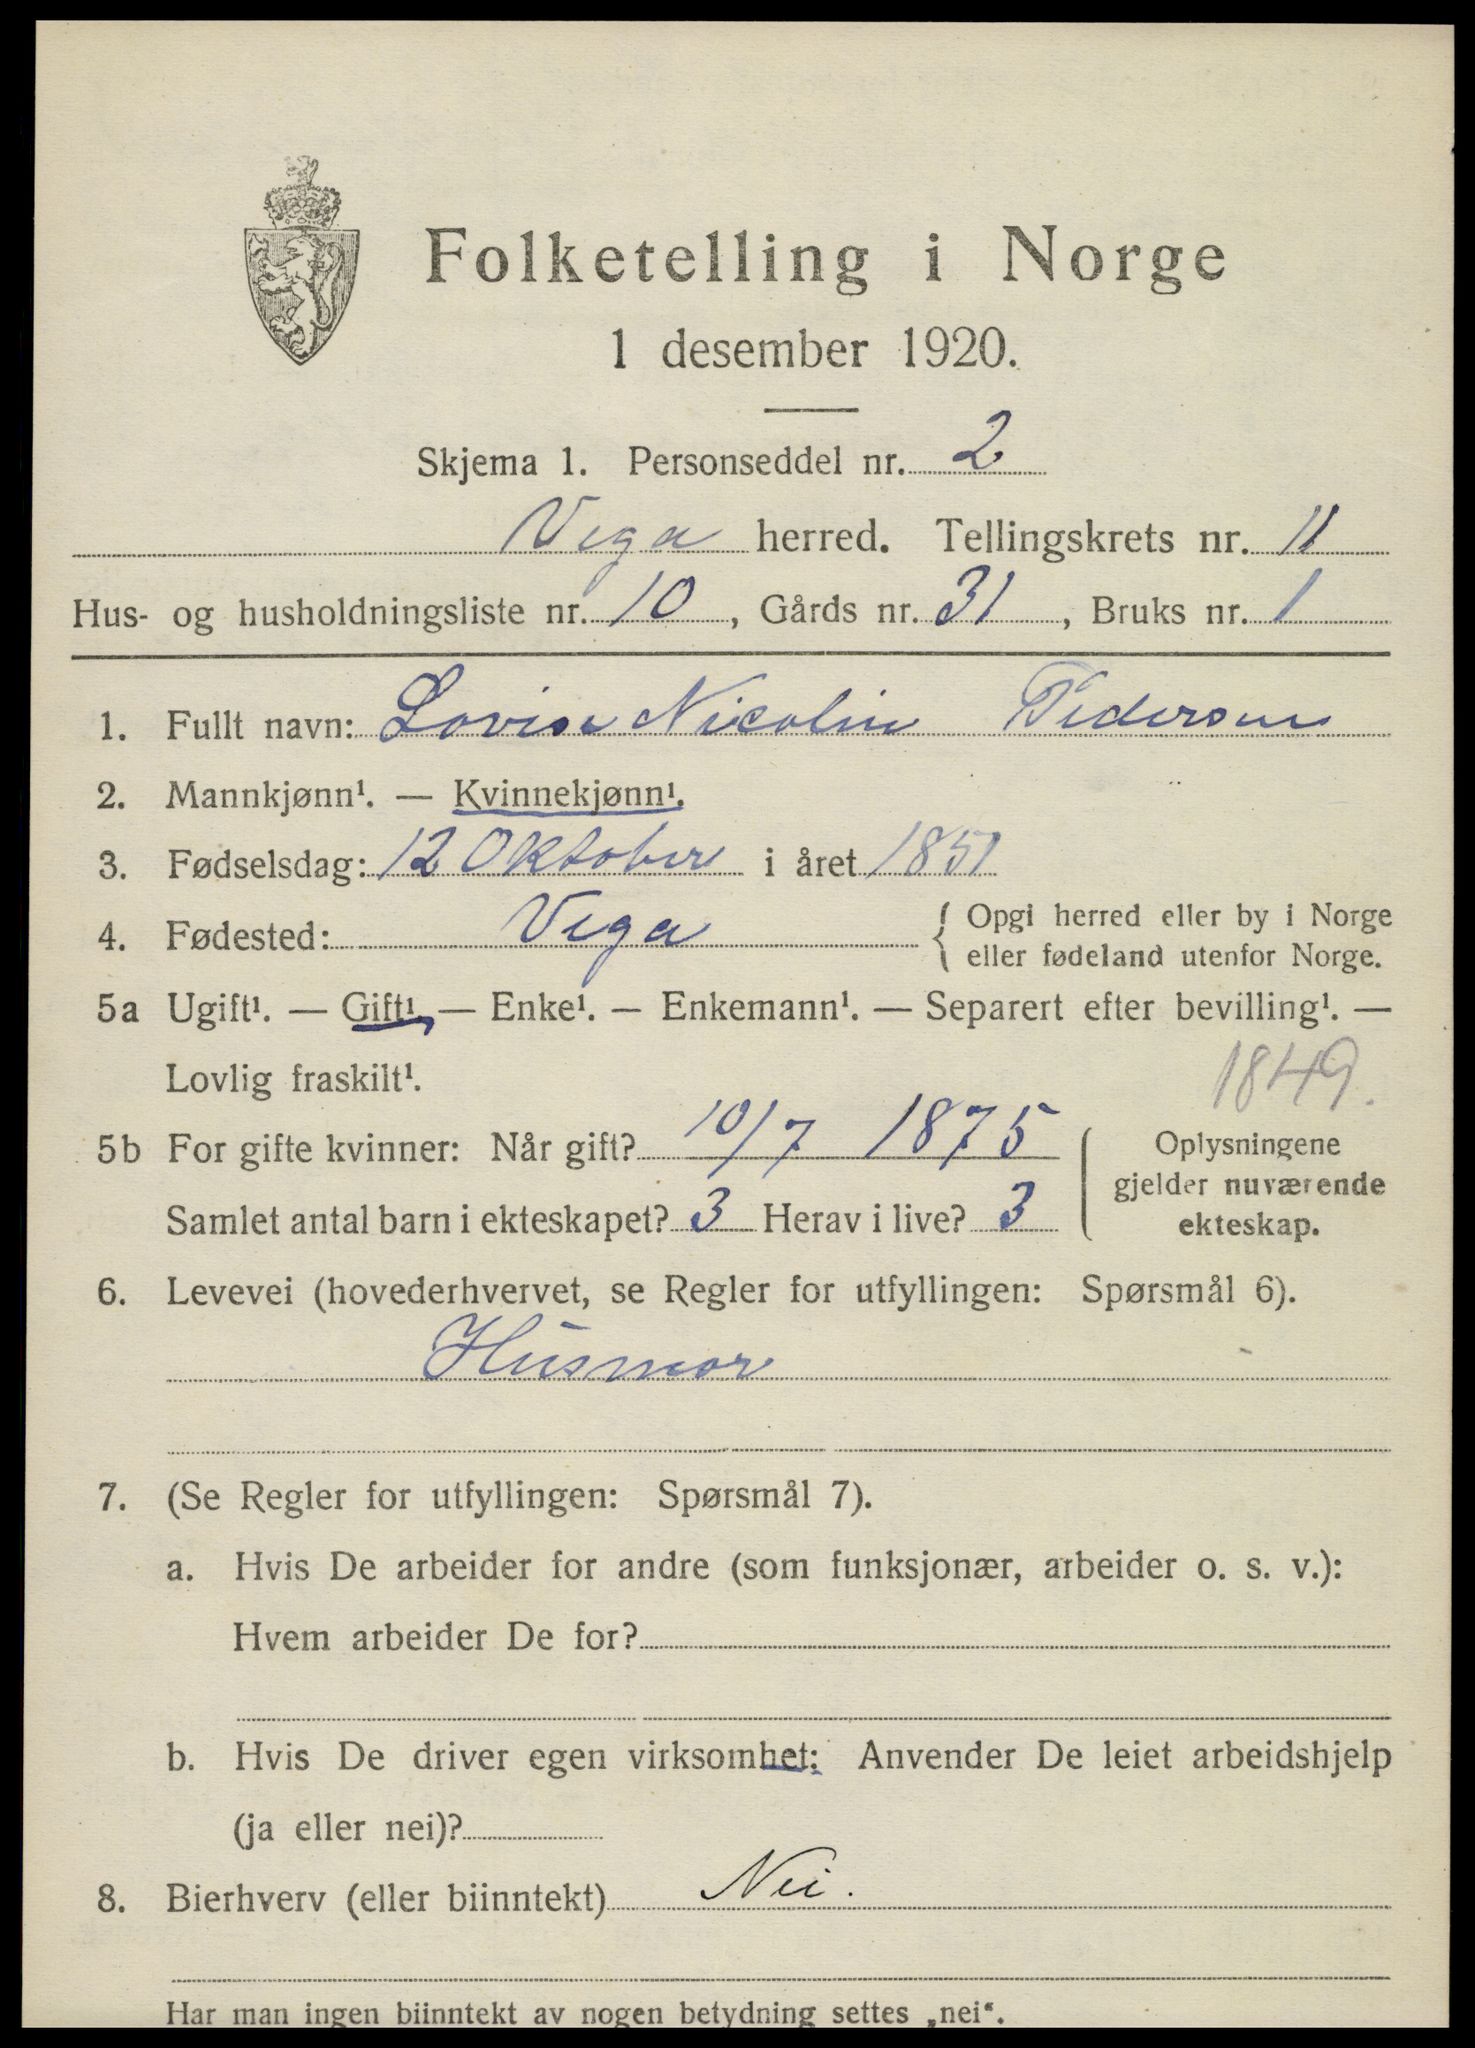 Folketelling i Norge
1 desember 1920.
Skjema 1. Personseddel nr. 2
Vega herred. Tellingskrets nr. 11
Hus- og husholdningsliste nr. 10, Gårds nr. 31, Bruks nr. 1
1. Fullt navn: Lovise Nicolin Pedersen
2. Mannkjønn¹. — Kvinnekjønn¹.
3. Fødselsdag: 12 Oktober i året 1851
4. Fødested: Vega { Opgi herred eller by i Norge
eller fødeland utenfor Norge.
5a Ugift¹. — Gift¹. — Enke¹. — Enkemann¹. — Separert efter bevilling¹. —
Lovlig fraskilt¹.
1849.
5b For gifte kvinner: Når gift? 10/7 1875
Samlet antal barn i ekteskapet? 3 Herav i live? 3
Oplysningene
gjelder nuværende
ekteskap.
6. Levevei (hovederhvervet, se Regler for utfyllingen: Spørsmål 6).
Husmor
7. (Se Regler for utfyllingen: Spørsmål 7).
a. Hvis De arbeider for andre (som funksjonær, arbeider o. s. v.):
Hvem arbeider De for?
b. Hvis De driver egen virksomhet: Anvender De leiet arbeidshjelp
(ja eller nei)?
8. Bierhverv (eller biinntekt) Nei.
Har man ingen biinntekt av nogen betydning settes „nei“.